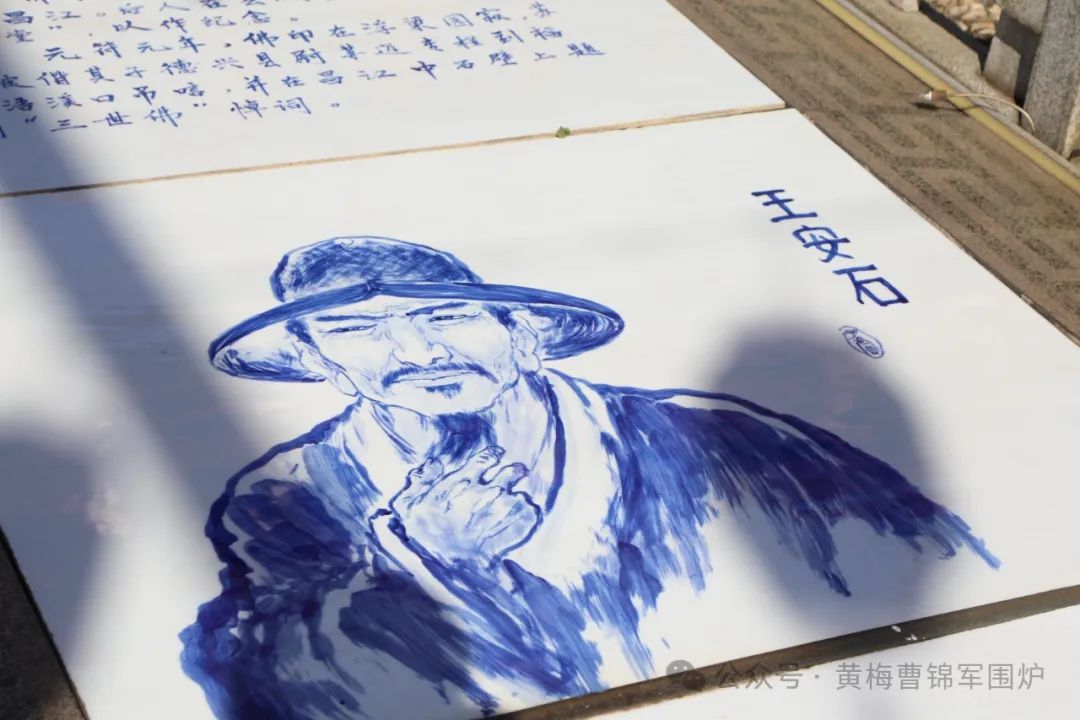 昌江。后人
堂”，以作纪念。
元符元年，佛印在浮梁圆寂，苏
坡偕其子德兴县尉苏迈专程到梅
溪口吊唁，并在昌江中石壁上题
“三世佛”悼词。
王安石
公众号·黄梅曹锦军围炉